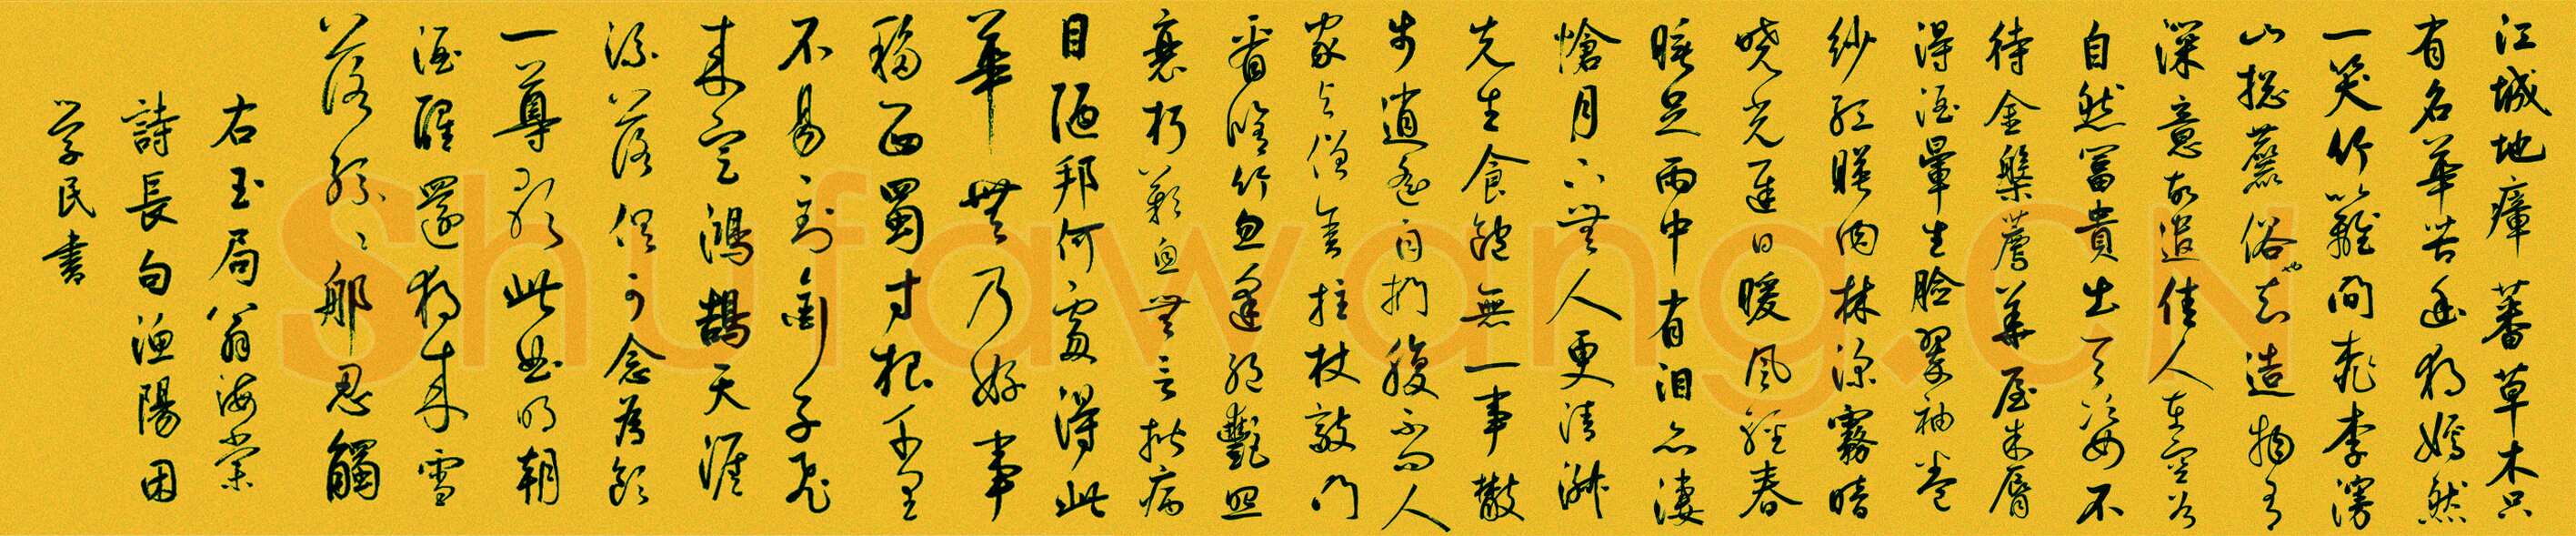 江城地瘴蕃草木只
有名華苦幽独嫣然
一笑竹籬間桃李漫
山總麤俗也知造物有
深意故遣佳人在空谷
自然富貴出天姿不
待金盤薦華屋朱脣
得酒暈生臉翠袖卷
紗紅暎肉林深霧暗
曉光遲日暖風輕春
睡足雨中有泪亦淒
愴月下無人更清淑
先生食飽無一事散
步逍遙自捫腹不問人
家與僧舍拄杖敲門
看脩竹忽逢絕艷照
衰朽歎息無言揩病
目陋邦何處得此
華無乃好事
移西蜀寸根千里
不易到銜子飛
来定鴻鵠天涯
流落俱可念為飲
一尊歌此曲明朝
酒醒還獨来雪
落紛々那忍觸
右玉局翁海棠
詩長句漁陽困
学民書
Shufawang.CN